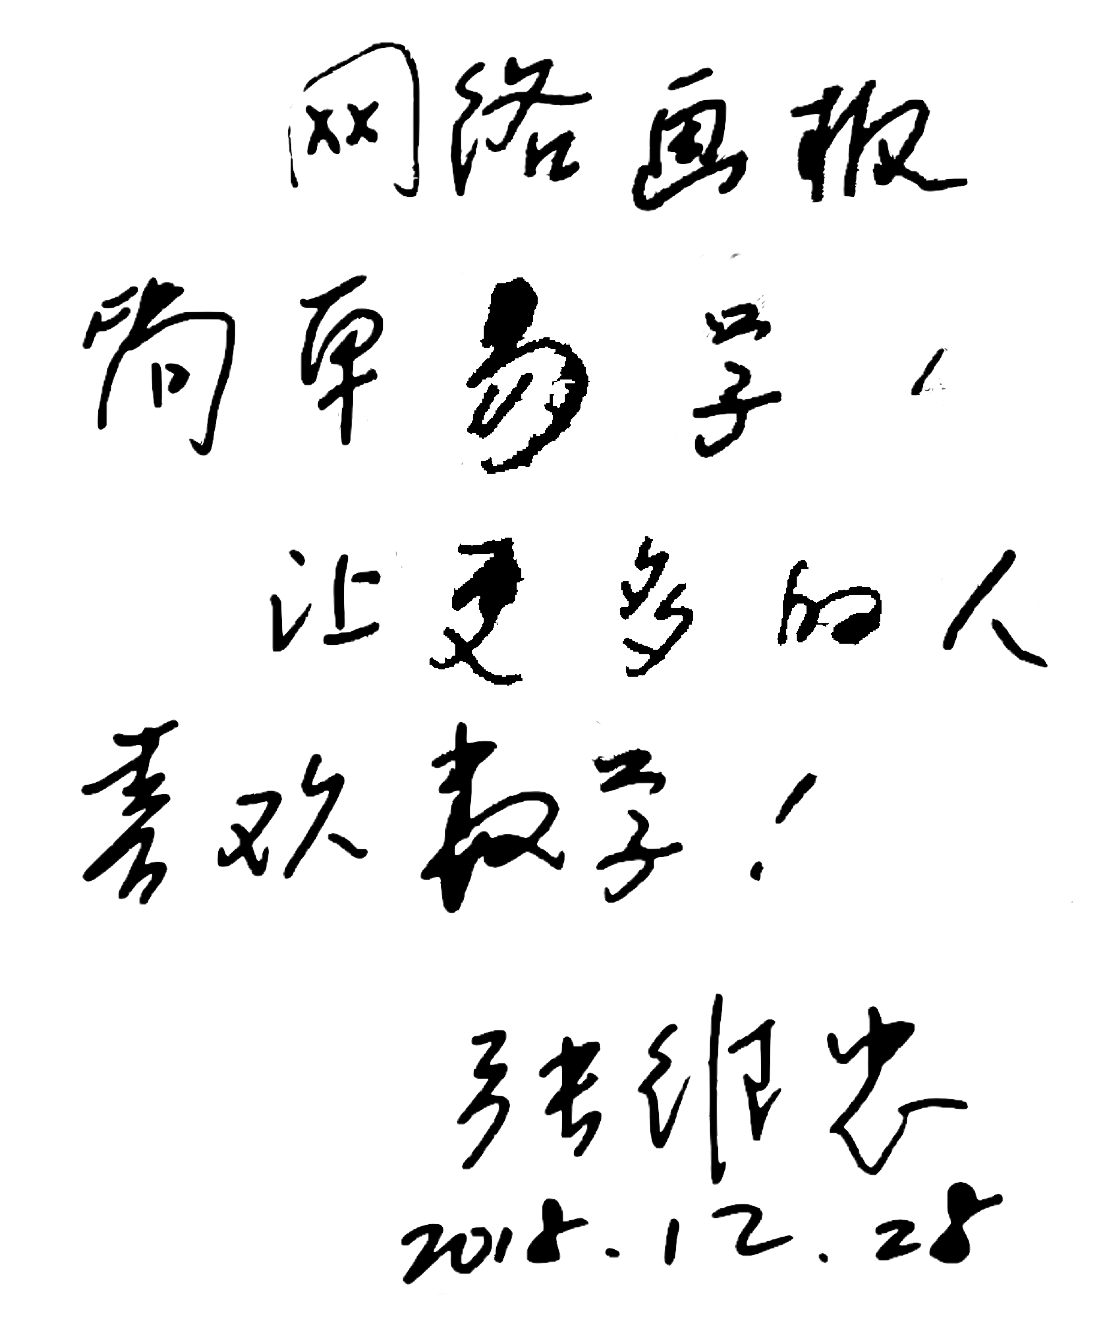 网络画板
简单易学,
让更多的人
喜欢数学!
张维忠
2018.12.28